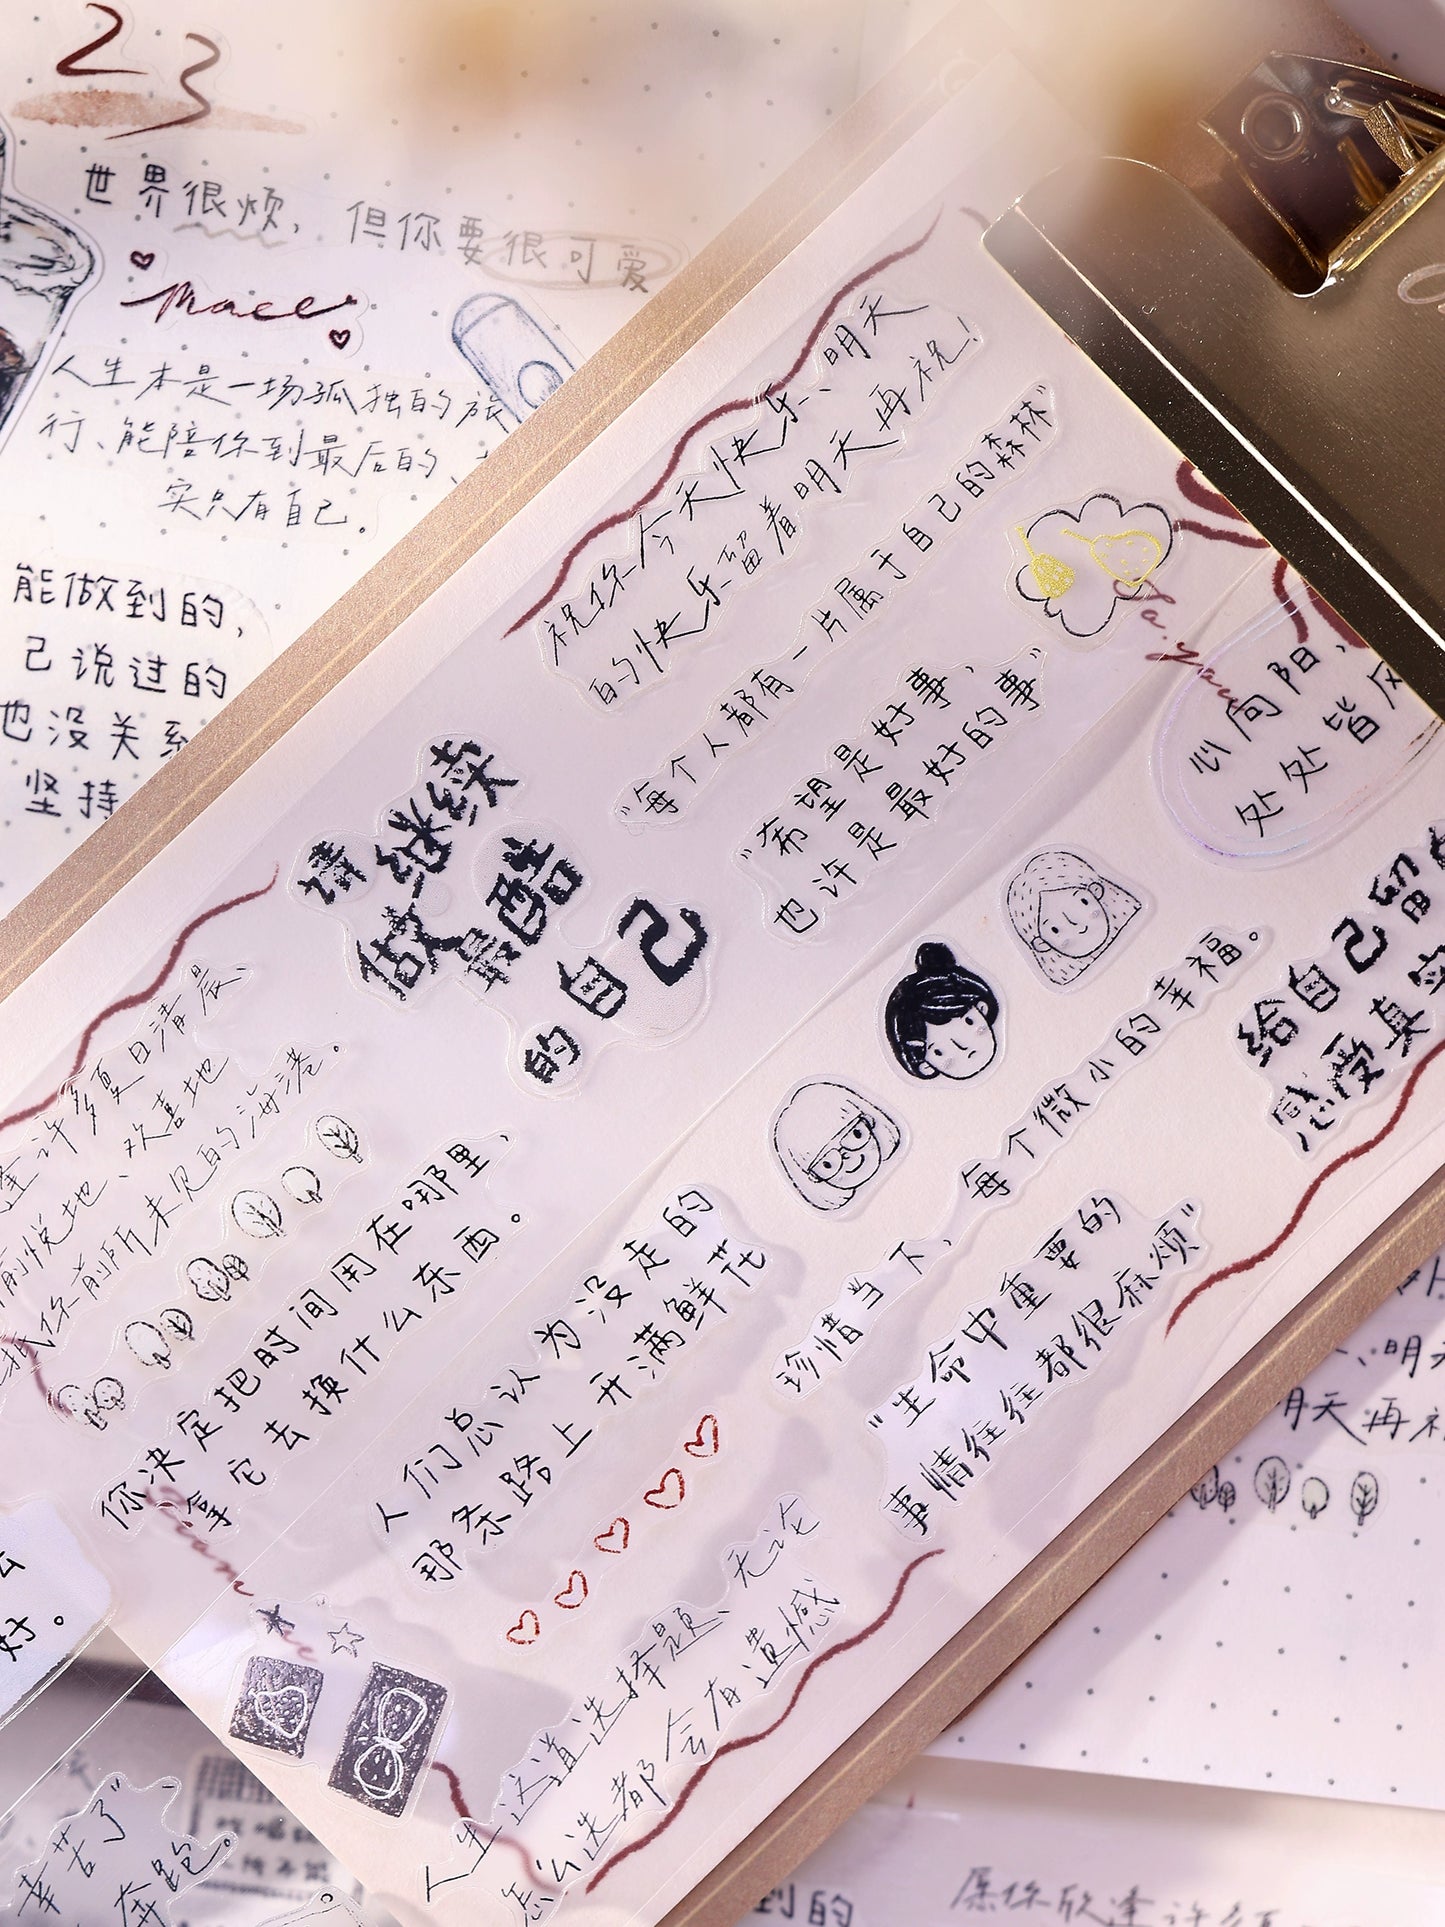 23
世界很烦，但你要很可爱
人生本是一场孤独的旅
行、能陪你到最后的、
实只有自己。
能做到的，
己说过的
也没关系
坚持
祝你今天快乐、明天
的快乐留着明天再祝！
"每个人都有一片属于自己的森林"
"希望是好事、
也许是最好的事"
心向阳、
处处皆风
请继续
做最酷
的自己
给自己留
感受真实
许多夏日清晨、
愉悦地、欢喜地
抵你前所未见的海港。
你决定把时间用在哪里、
拿它去换什么东西。
人们总认为没走的
那条路上开满鲜花
珍惜当下，每个微小的幸福。
"生命中重要的
事情往往都很麻烦"
人生这道选择题、无论
怎么选都会有遗憾
好。
辛苦了"
奔跑。
明天
明天再祝
到的
愿你欣逢许多